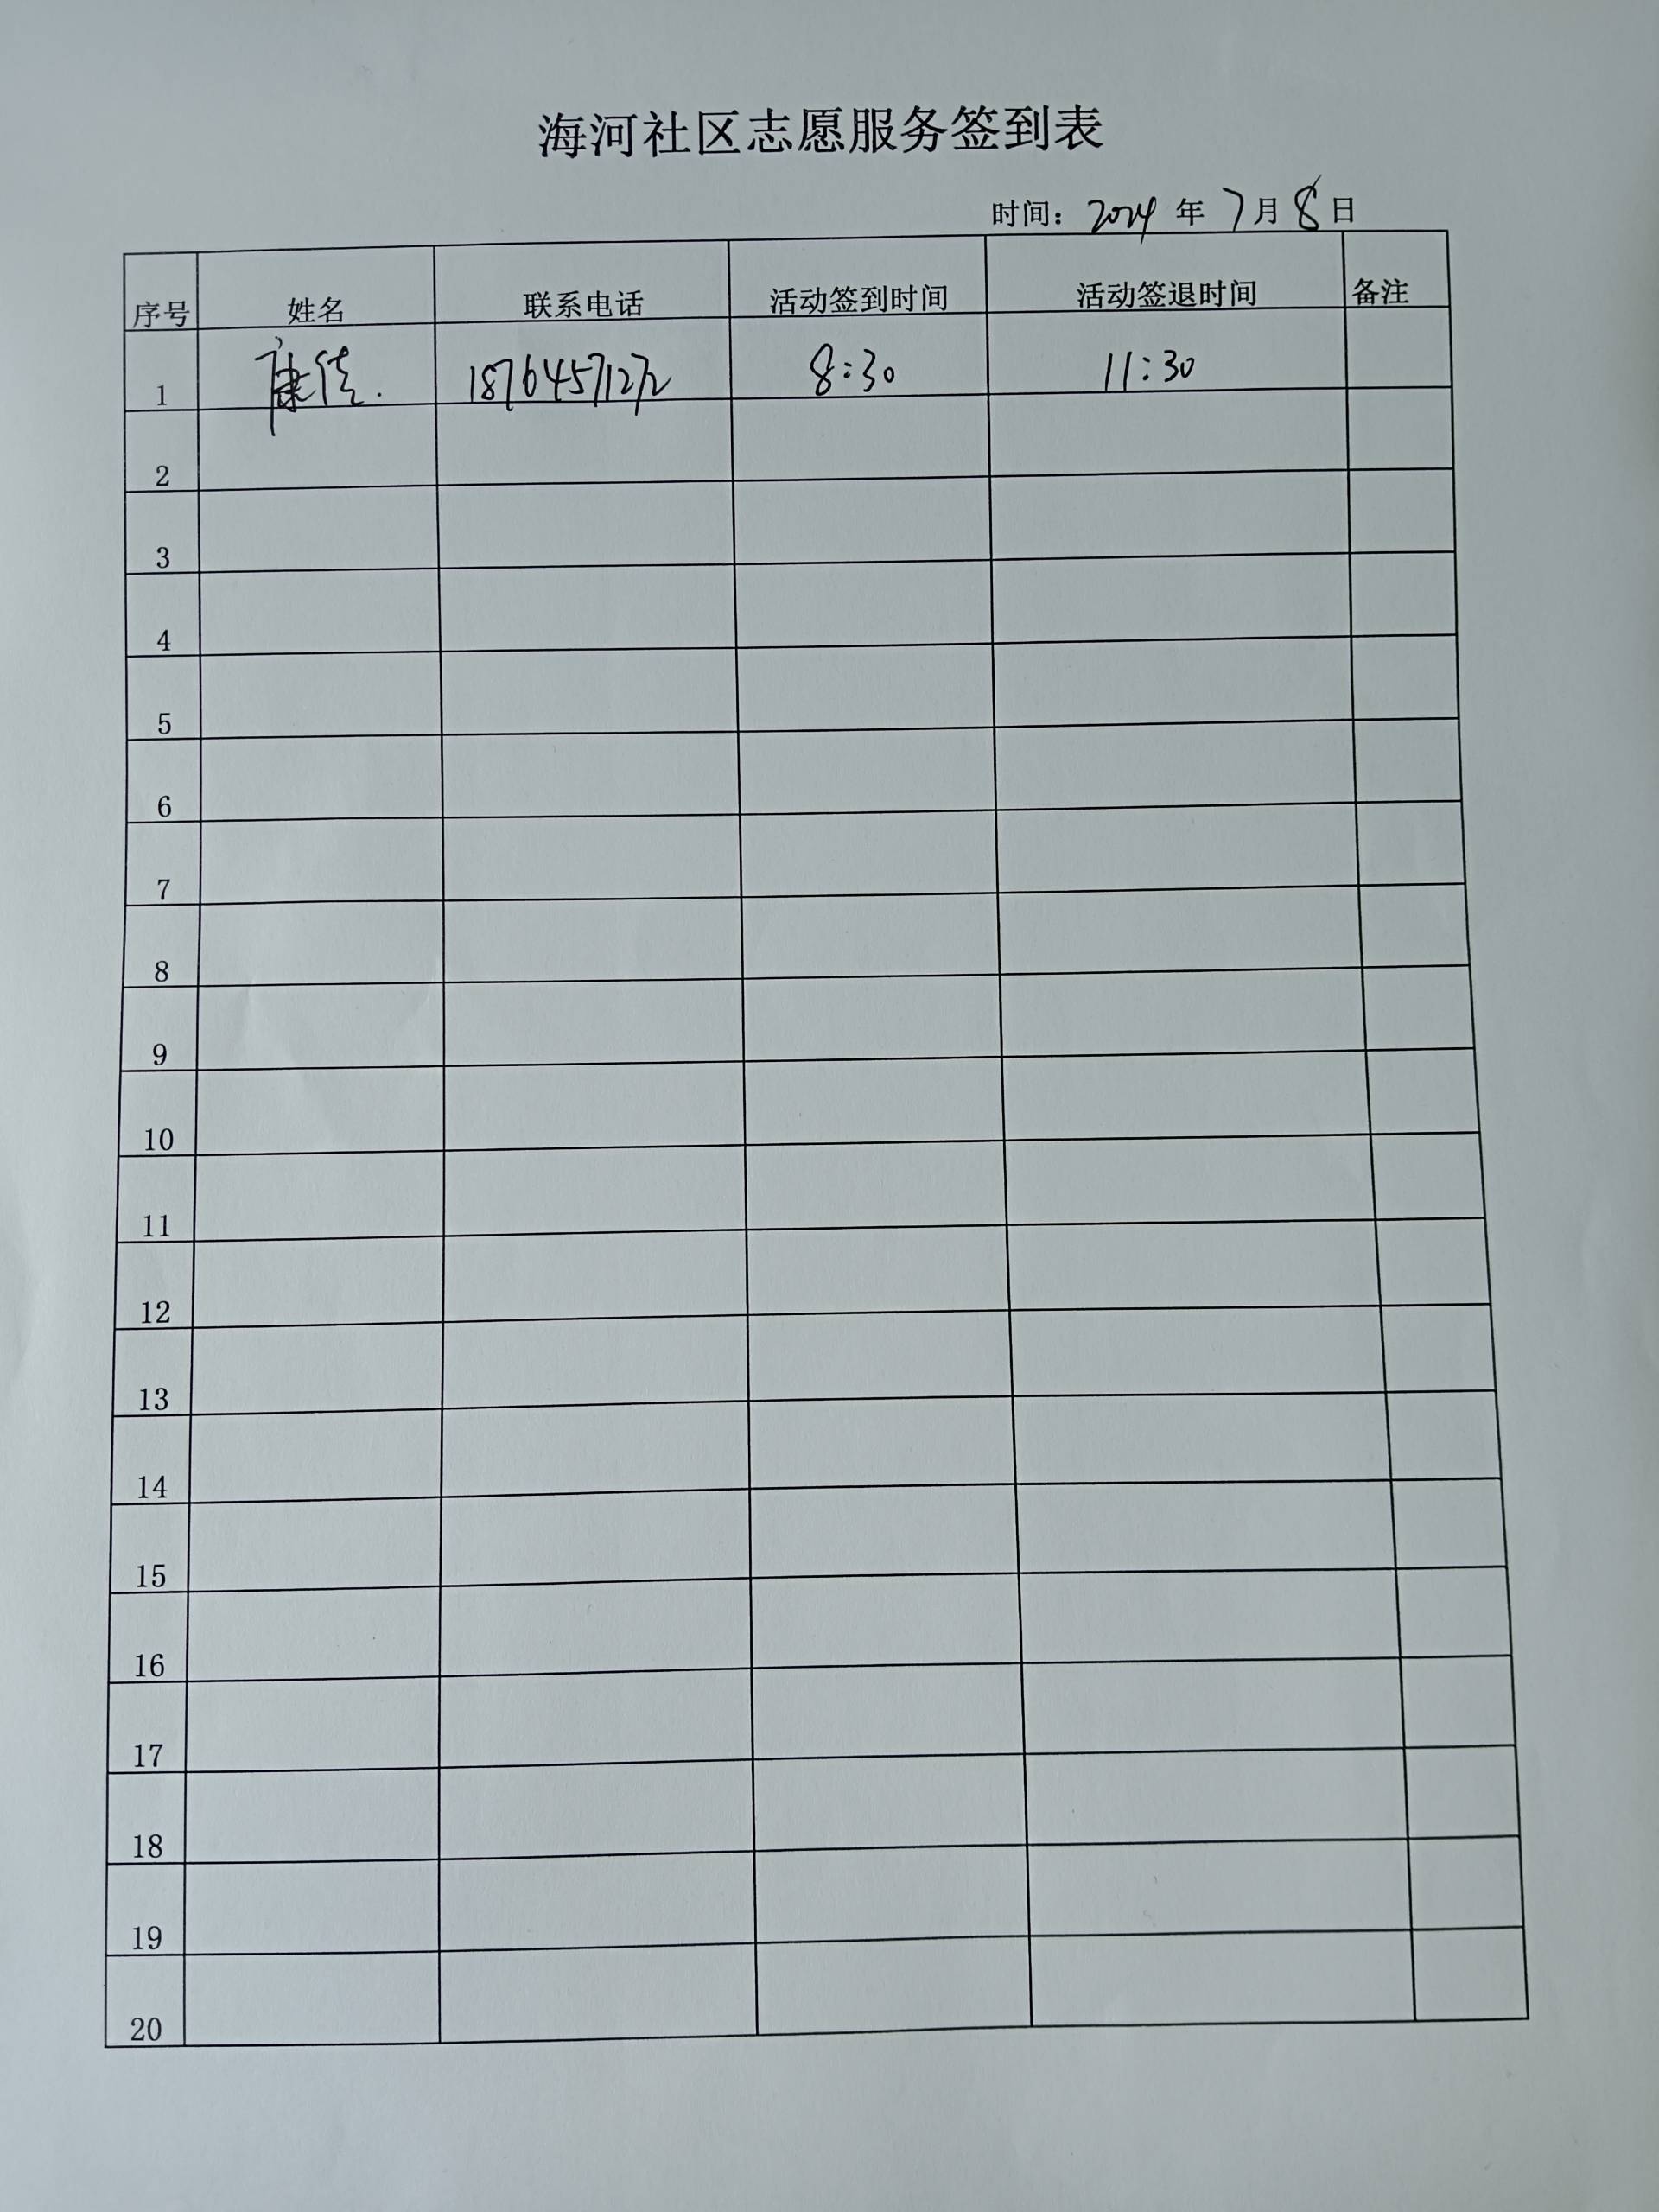 海河社区志愿服务签到表
时间：2024 年 7 月 8 日
序号 姓名 联系电话 活动签到时间 活动签退时间 备注
1 康佳. 18764571272 8:30 11:30
2
3
4
5
6
7
8
9
10
11
12
13
14
15
16
17
18
19
20